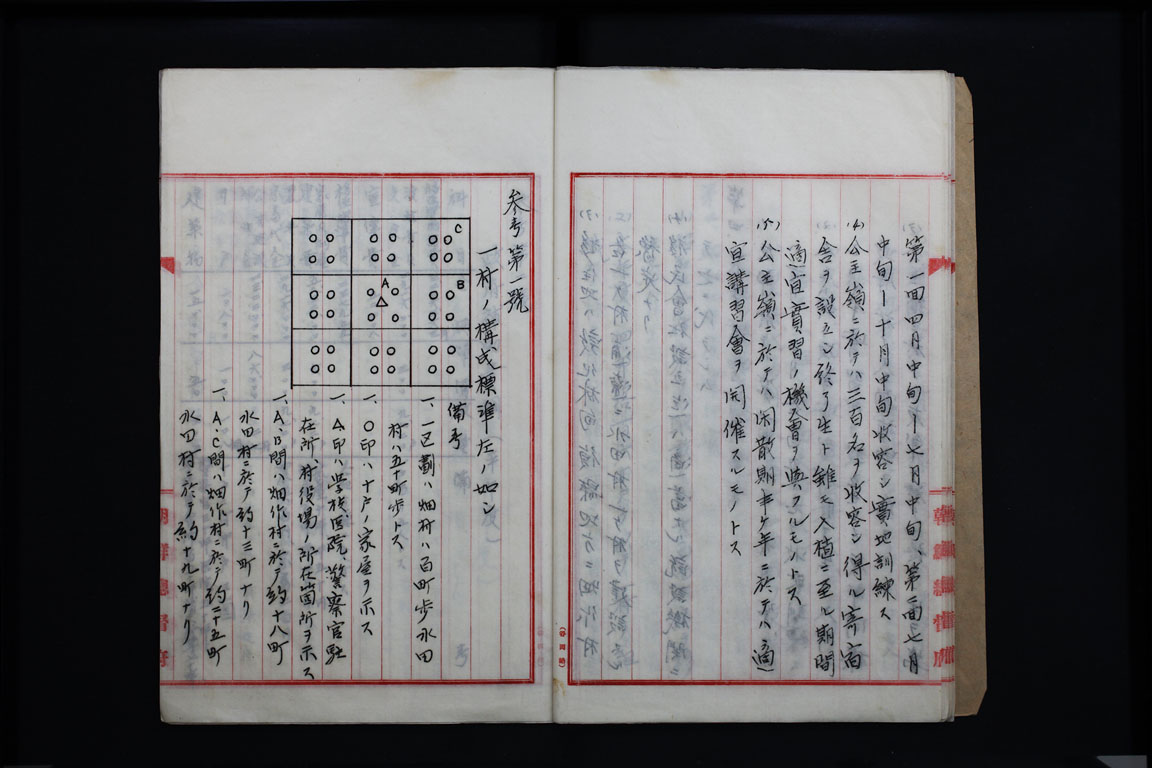 第一回四月中旬ー七月中旬、第二回七月
中旬ー十月中旬収容シ實地訓練ス
(4)公主嶺ニ於テハ三百名ヲ收容シ得ル寄宿
舎ヲ設ケ終了生ト雖モ入植ニ至ル期間
適宜實習ノ機會ヲ與フルモノトス
(5)公主嶺ニ於テハ閑散期半ケ年ニ於テハ適
宜講習會ヲ開催スルモノトス
参考第一號
一村ノ構成標準左ノ如シ
C
B
A
備考
一、一区劃ハ畑村ハ百町歩水田
村ハ五十町歩トス
一、○印ハ十戸ノ家屋ヲ示ス
一、△印ハ学校医院、警察官駐
在所、村役場ノ所在箇所ヲ示ス
一、A、B間ハ畑作村ニ於テ約十八町
水田村ニ於テ約十三町ナリ
一、A、C間ハ畑作村ニ於テ約二十五町
水田村ニ於テ約十九町ナリ
朝鮮總督府